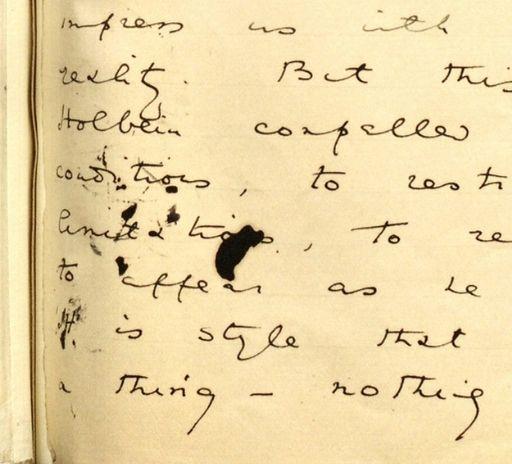 impress us with
reality. But this
Holbein compelled
conditions, to restr
limitations, to re
to appear as he
It is style that
a thing – nothing